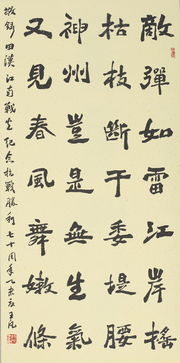 敵彈如雷江岸搖
枯枝斷干委堤腰
神州豈是無生氣
又見春風舞嫩條
敬錄田漢江南戰 紀念抗戰勝利七十周年乙未夏王